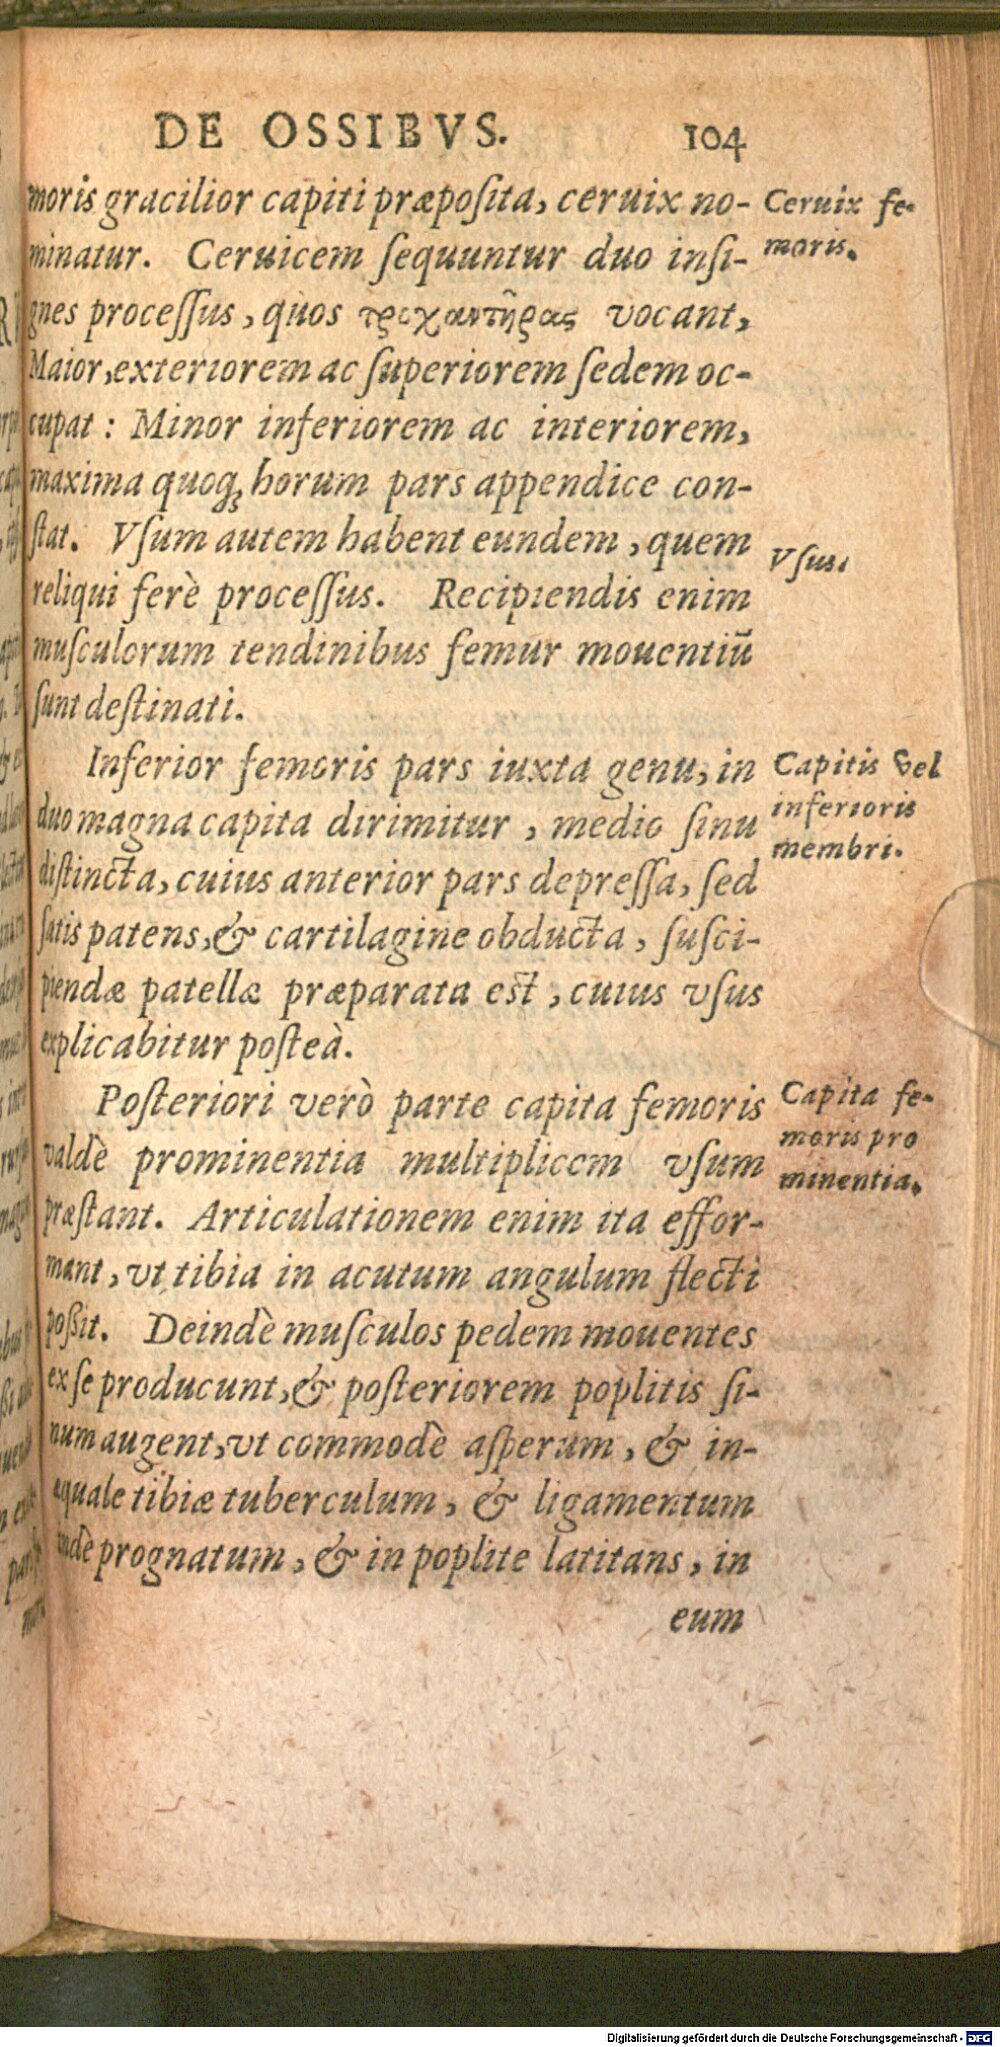 DE OSSIBVS. 104
moris gracilior capiti præposita, ceruix no-
Ceruix fe-
moris.
minatur. Ceruicem sequuntur duo insi-
gnes processus, quos τροχαντῆρας vocant,
Maior, exteriorem ac superiorem sedem oc-
cupat: Minor inferiorem ac interiorem,
maxima quoq; horum pars appendice con-
stat. Vsum autem habent eundem, quem
Vsus.
reliqui ferè processus. Recipiendis enim
musculorum tendinibus femur mouentiũ
sunt destinati.
Inferior femoris pars iuxta genu, in
Capitis vel
inferioris
membri.
duo magna capita dirimitur, medio sinu
distincta, cuius anterior pars depressa, sed
satis patens, & cartilagine obducta, susci-
piendæ patellæ præparata est, cuius vsus
explicabitur posteà.
Posteriori verò parte capita femoris
Capita fe-
moris pro
minentia.
valdè prominentia multiplicem vsum
præstant. Articulationem enim ita effor-
mant, vt tibia in acutum angulum flecti
possit. Deindè musculos pedem mouentes
ex se producunt, & posteriorem poplitis si-
num augent, vt commodè asperum, & in-
æquale tibiæ tuberculum, & ligamentum
indè prognatum, & in poplite latitans, in
eum
Digitalisierung gefördert durch die Deutsche Forschungsgemeinschaft - DFG